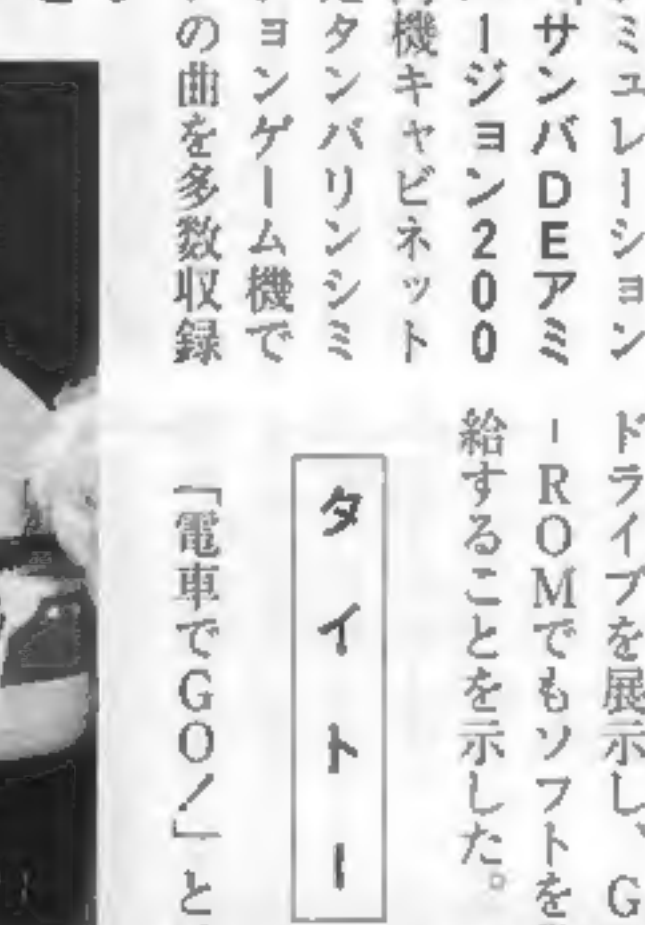 ミュレーション
サンバDEアミ
ージョン200
機キャビネット
タンバリンシミ
ョンゲーム機で
の曲を多数収録
ドライブを展示し、G
-ROMでもソフトを
給することを示した。
タイトー
「電車でGO!」と